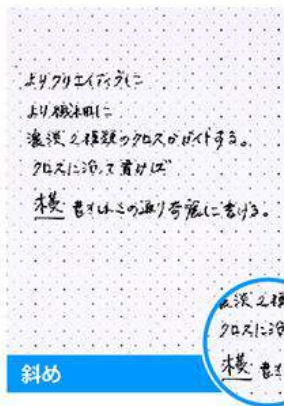 よりクリエイティブに
より機能的に
濃淡2種類のクロスがガイドする。
クロスに沿って書けば
横書きはこの通り奇麗に書ける。
濃淡2種
クロスに沿
横書き
斜め